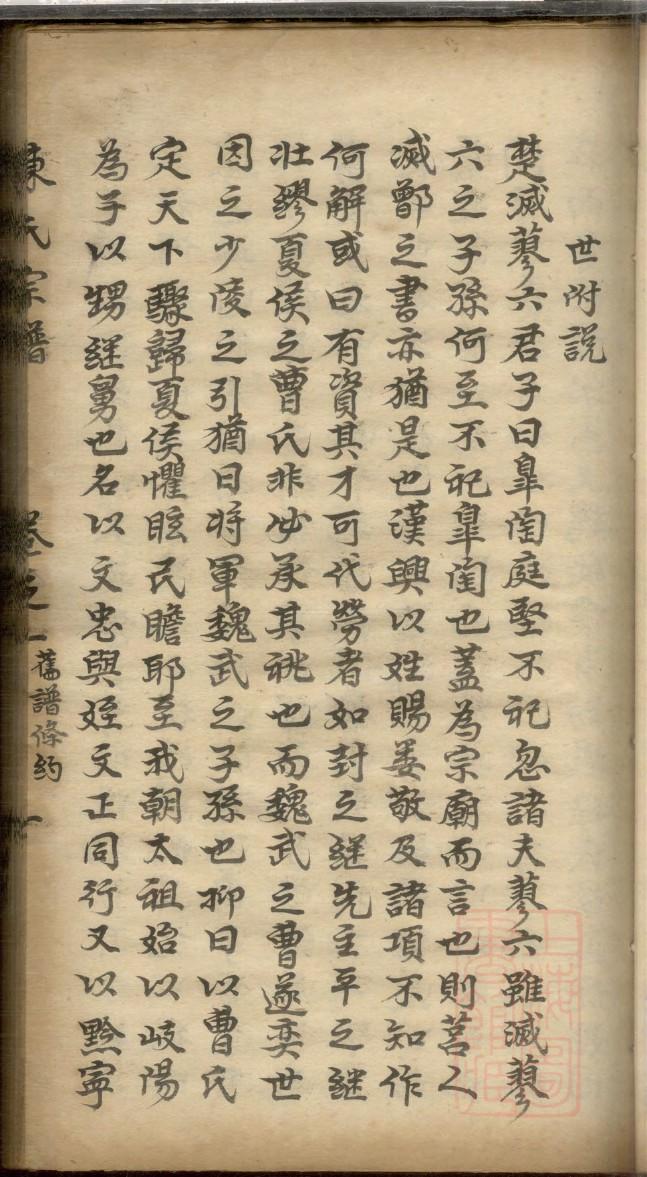 世附説
楚滅蓼六君子曰臯陶庭堅不祀忽諸夫蓼六雖滅蓼
六之子孫何至不祀臯陶也蓋為宗廟而言也則莒人
滅鄫之書亦猶是也漢興以姓賜婁敬及諸項不知作
何解或曰有資其才可代勞者如封之繼先主平之繼
壮繆夏侯之曹氏非必承其祧也而魏武之曹遂奕世
因之少陵之引猶曰将軍魏武之子孫也抑曰以曹氏
定天下驟歸夏侯懼眩民瞻耶至我朝太祖始以岐陽
為子以甥継舅也名以文忠與姪文正同行又以黔寧
陳氏宗譜 卷之一 舊譜條約 一